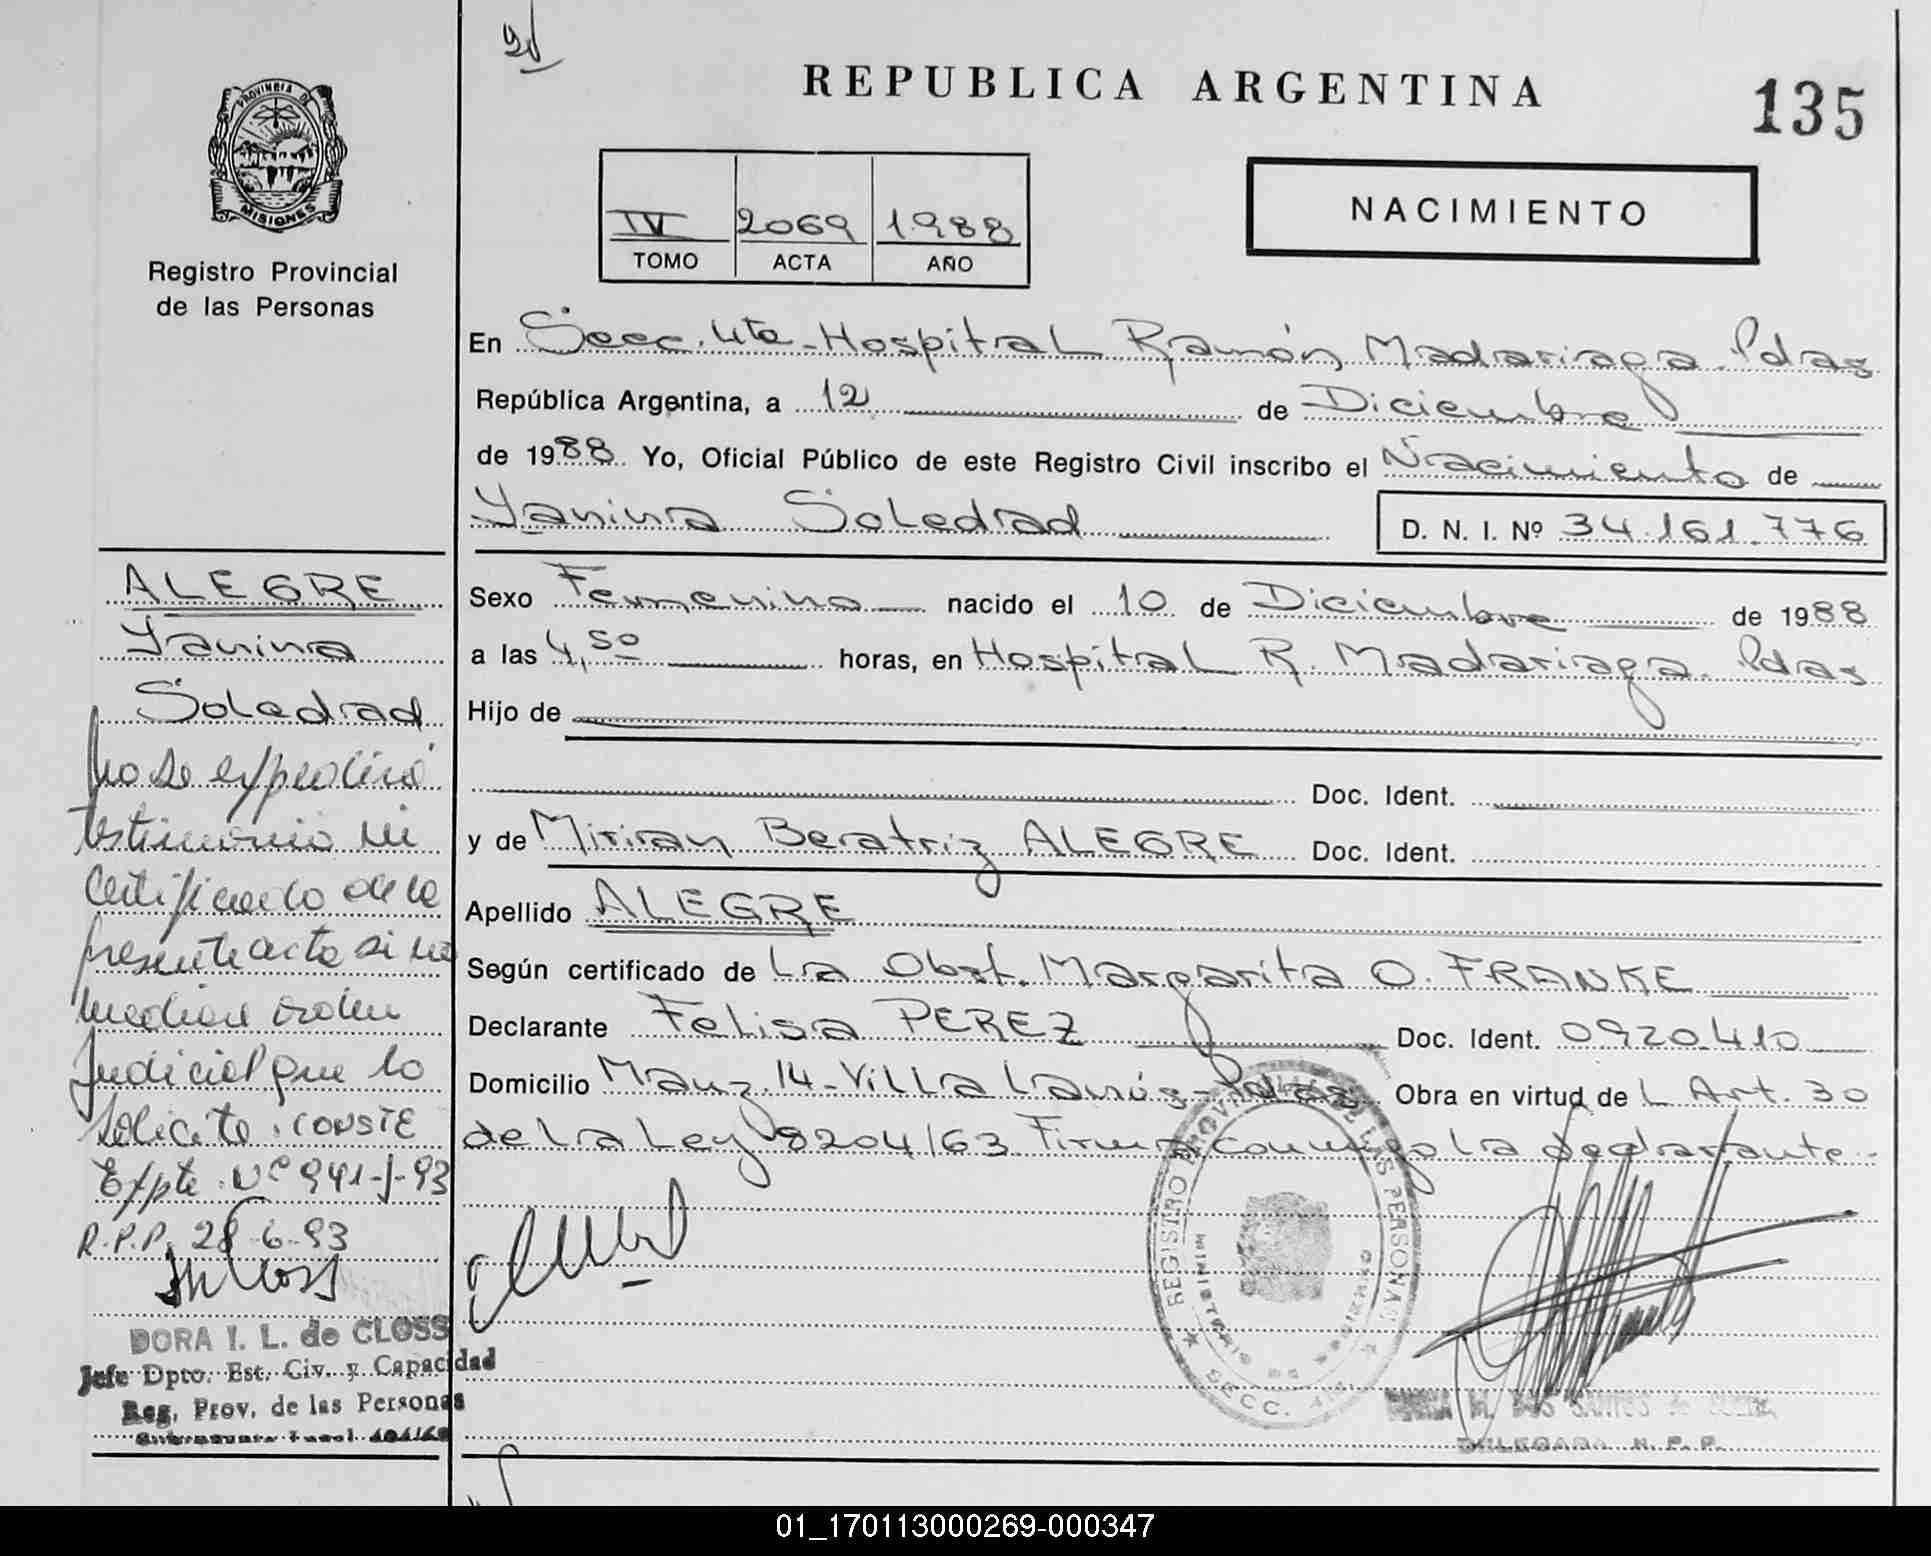 REPUBLICA ARGENTINA
135
PROVINCIA DE
MISIONES
Registro Provincial
de las Personas
IV 2069 1988
TOMO ACTA AÑO
NACIMIENTO
En Secc. 4ta - Hospital Ramón Madariaga. Pdas
República Argentina, a 12 de Diciembre
de 1988 Yo, Oficial Público de este Registro Civil inscribo el Nacimiento de
Yanina Soledad
D. N. I. Nº 34.161.776
Sexo Femenino nacido el 10 de Diciembre de 1988
a las 4,50 horas, en Hospital R. Madariaga. Pdas
Hijo de
Doc. Ident.
y de Miriam Beatriz ALEGRE Doc. Ident.
Apellido ALEGRE
Según certificado de La Obst. Margarita O. FRANKE
Declarante Felisa PEREZ Doc. Ident. 0920410
Domicilio Manz. 14 - Villa Lanús - Pdas Obra en virtud de L Art. 30
de La Ley 8204/63 Firma conmigo la declarante.-
ALEGRE
Yanina
Soledad
No se expedirá
testimonio ni
certificado de la
presente acta si no
mediare orden
Judicial que lo
solicite. CONSTE
Expte. Nº 941-J-93
R.P.P. 28-6-93
DORA I. L. de CLOSS
Jefe Dpto. Est. Civ. y Capacidad
Reg. Prov. de las Personas
REGISTRO PROVINCIAL DE LAS PERSONAS
MINISTERIO DE GOBIERNO
SECC. 4ta
DELEGADA R. P. P.
01_170113000269-000347